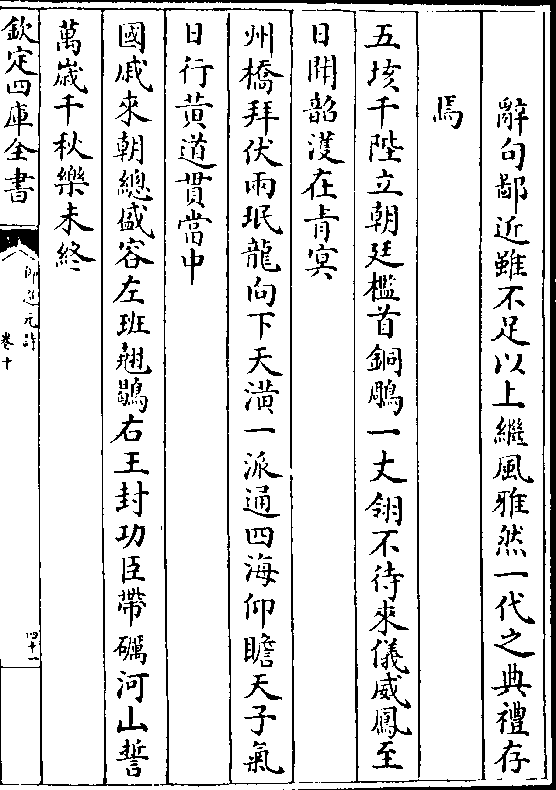 辭句鄙近雖不足以上繼風雅然一代之典禮存
焉
五垓千陛立朝廷檻首銅鵰一丈翎不待來儀威鳳至
日閒韶濩在青冥
州橋拜伏兩珉龍向下天潢一派通四海仰瞻天子氣
日行黃道貫當中
國戚來朝總盛容左班翹鶡右王封功臣帶礪河山誓
萬歲千秋樂未終
欽定四庫全書
御選元詩
卷十
四十一